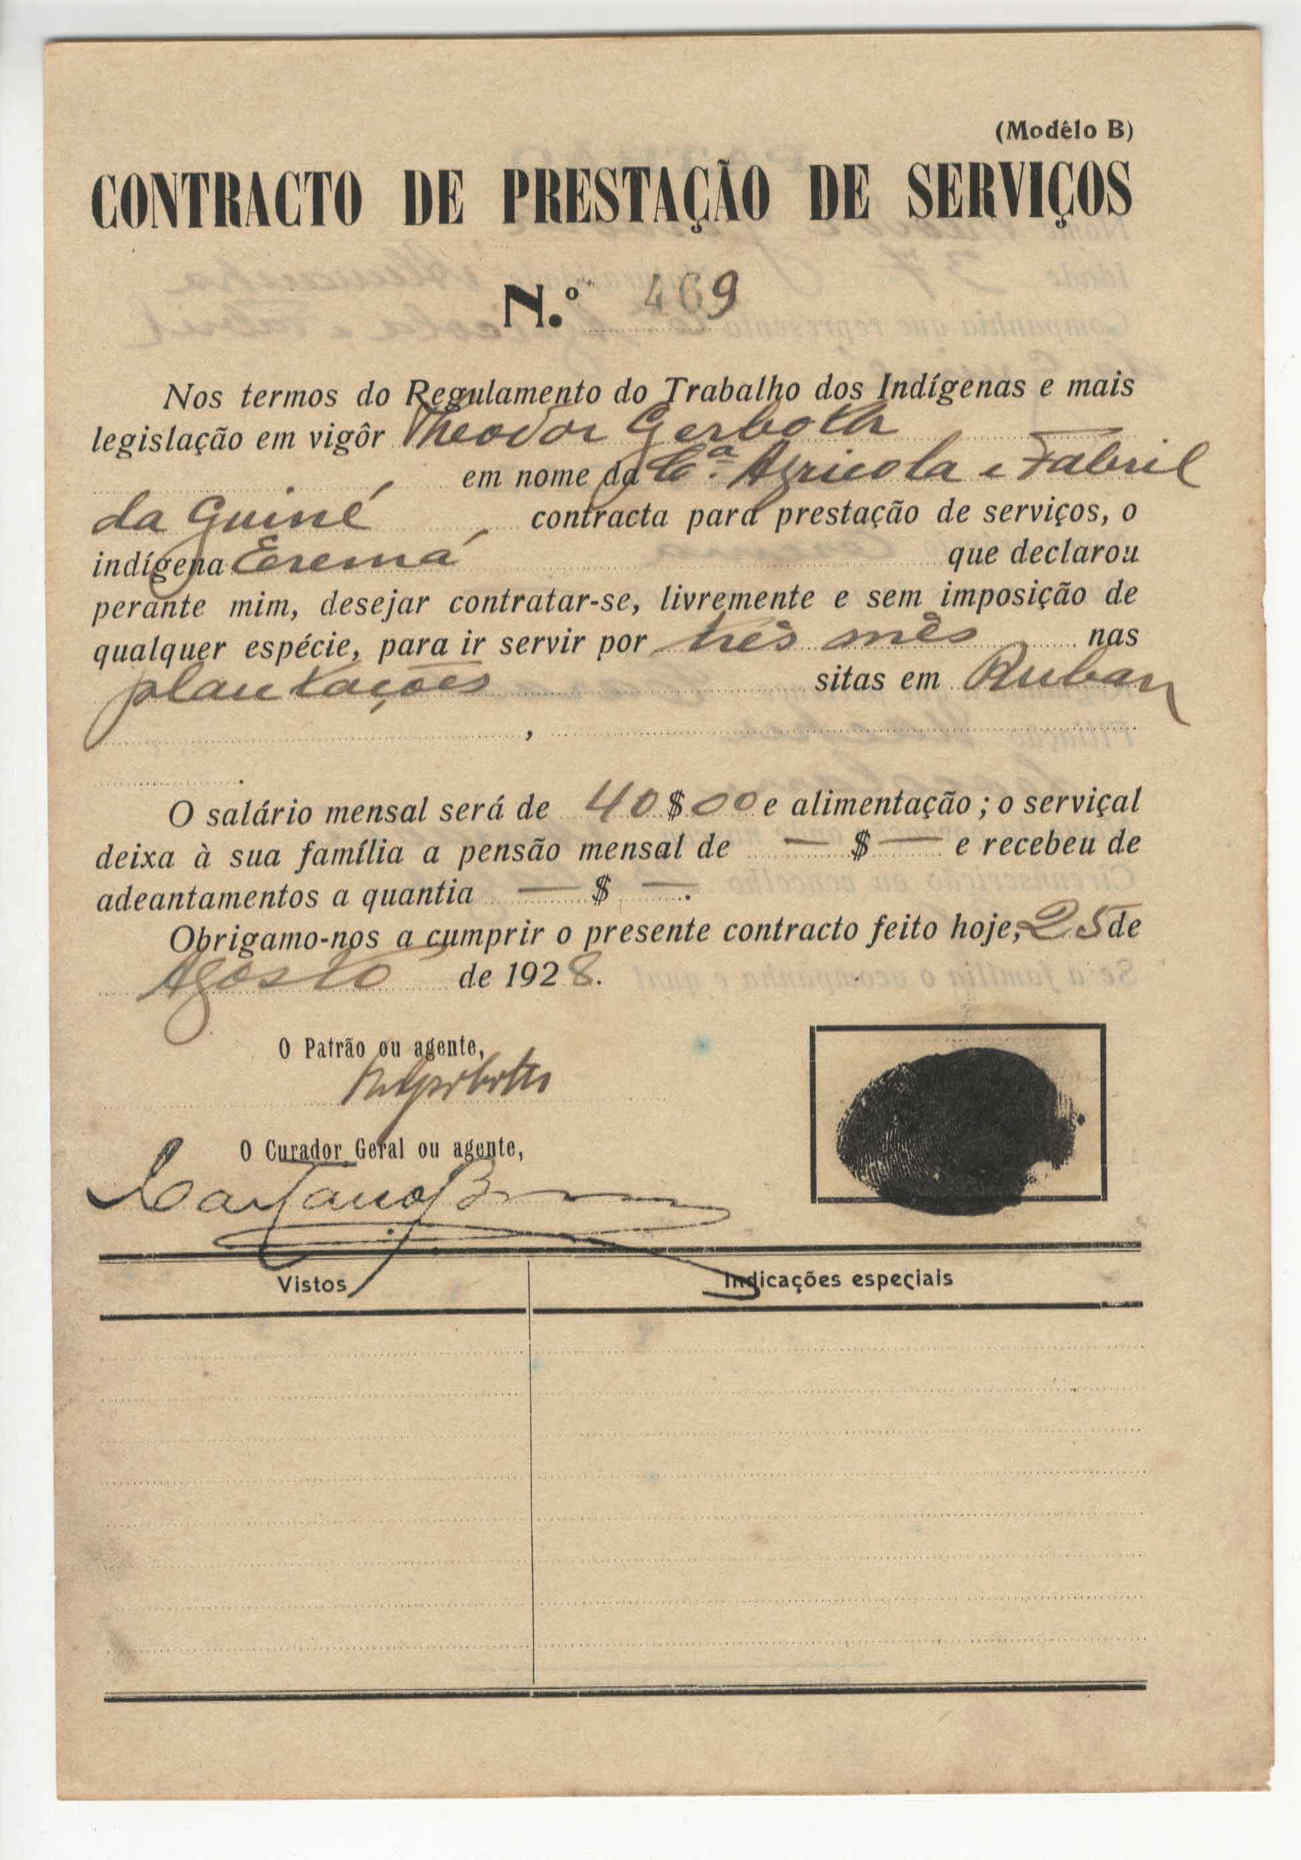 (Modêlo B)
CONTRACTO DE PRESTAÇÃO DE SERVIÇOS
N.º 469
Nos termos do Regulamento do Trabalho dos Indígenas e mais
legislação em vigôr Theodor Gerbota
em nome da Cª. Agricola e Fabril
da Guiné contracta para prestação de serviços, o
indígena Eremá que declarou
perante mim, desejar contratar-se, livremente e sem imposição de
qualquer espécie, para ir servir por três mês nas
plantações sitas em Ruban
,
.
O salário mensal será de 40$00 e alimentação; o serviçal
deixa à sua família a pensão mensal de — $ — e recebeu de
adeantamentos a quantia — $ —.
Obrigamo-nos a cumprir o presente contracto feito hoje, 25 de
Agosto de 1928.
O Patrão ou agente,
O Curador Geral ou agente,
Vistos
Indicações especiais